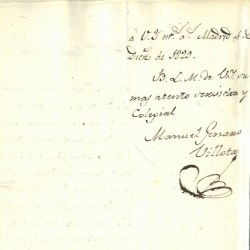 á V. I. m.s a.s Madrid 4 de
Dic.e de 1829.
B. L. M. de V. I. su
mas atento servidor y
Colegial
Manuel Genaro
Villota